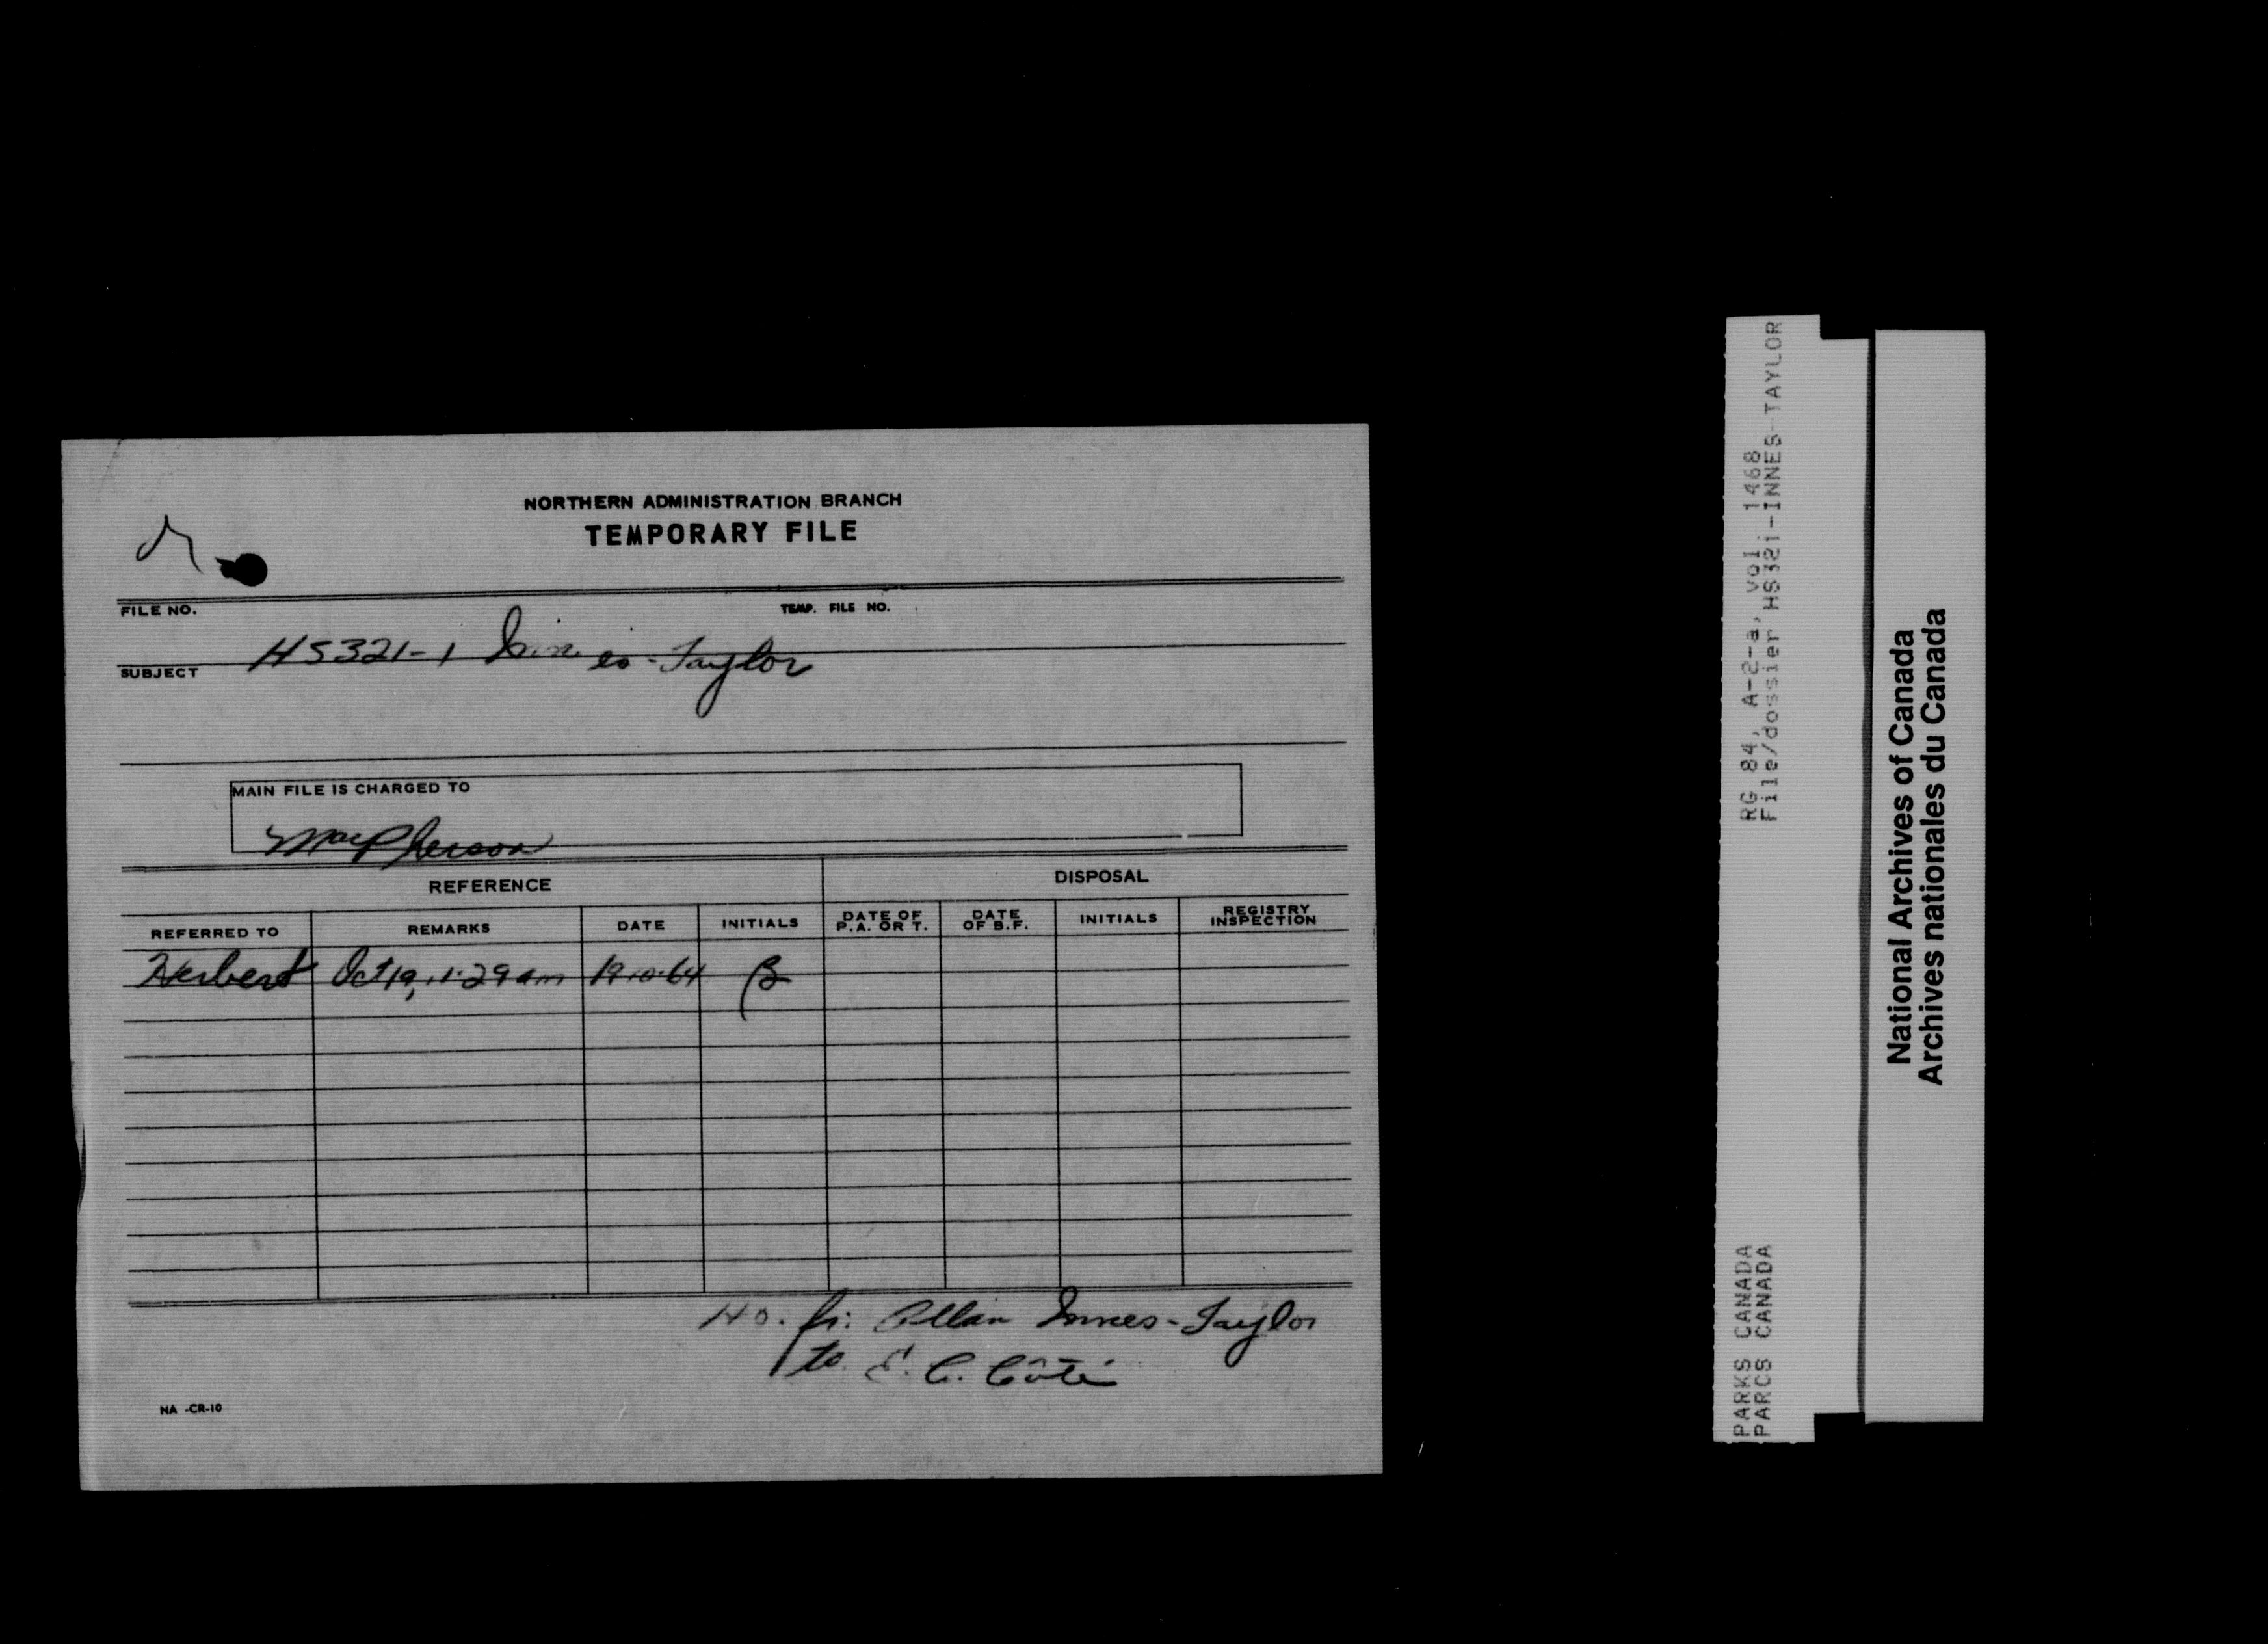 NORTHERN ADMINISTRATION BRANCH
TEMPORARY FILE
FILE NO.
TEMP. FILE NO.
HS321-1 Innes-Taylor
SUBJECT
MAIN FILE IS CHARGED TO
MacPherson
REFERENCE DISPOSAL
REFERRED TO REMARKS DATE INITIALS DATE OF P.A. OR T. DATE OF B.F. INITIALS REGISTRY INSPECTION
Herbert Oct 19, 11:29 am 19-10-64
fr: Allan Innes-Taylor
to E. A. Côté
NA -CR-10
RG 84, A-2-a, vol. 1468
File/dossier HS321-INNES-TAYLOR
PARKS CANADA
PARCS CANADA
National Archives of Canada
Archives nationales du Canada